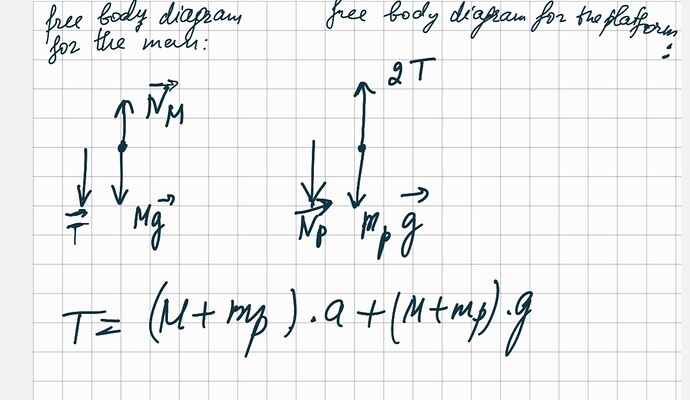 free body diagram
for the man:
free body diagram for the platform
:
N⃗_M
2T
T⃗
Mg⃗
N⃗_p
m_p g⃗
T = (M + m_p) . a + (M + m_p) . g